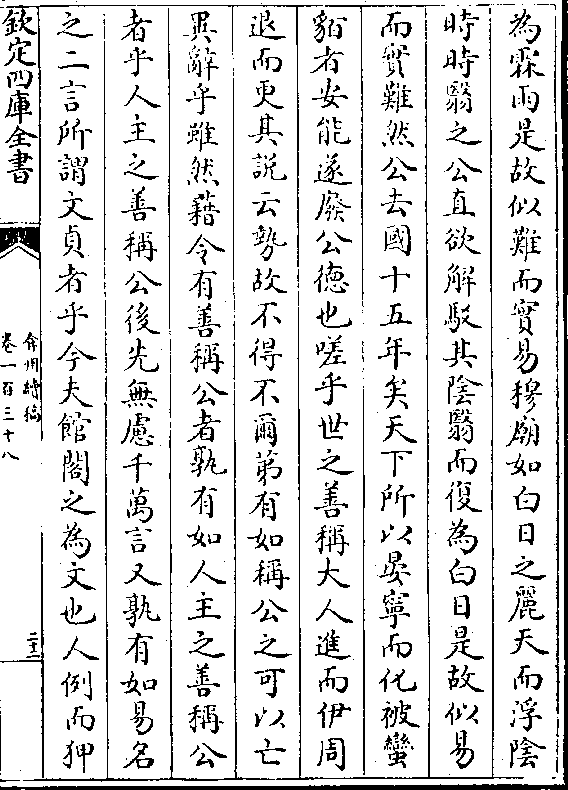 為霖雨是故似難而實易穆廟如白日之麗天而浮陰
時時翳之公直欲解駁其陰翳而復為白日是故似易
而實難然公去國十五年矣天下所以晏寧而化被蠻
貊者安能遂廢公德也嗟乎世之善稱大人進而伊周
退而更其説云勢故不得不爾第有如稱公之可以亡
異辭乎雖然藉令有善稱公者孰有如人主之善稱公
者乎人主之善稱公後先無慮千萬言又孰有如易名
之二言所謂文貞者乎今夫館閣之為文也人例而狎
欽定四庫全書
弇州續稿
卷一百三十八
二十二